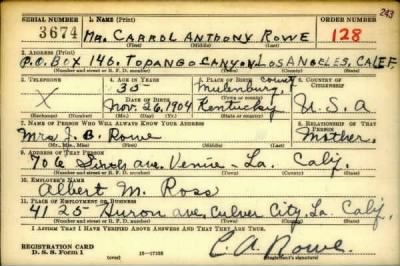 243
SERIAL NUMBER 1. NAME (Print) ORDER NUMBER
3674 MR. CARROL ANTHONY ROWE 128
(First) (Middle) (Last)
2. ADDRESS (Print)
P.O. BOX 146. TOPANGO CANYON LOS ANGELES, CALIF
(Number and street or R. F. D. number) (Town) (County) (State)
3. TELEPHONE 4. AGE IN YEARS 5. PLACE OF BIRTH 6. COUNTRY OF CITIZENSHIP
X 35 Mulenburg, county
DATE OF BIRTH
Nov. 26, 1904 Kentucky U.S.A
7. NAME OF PERSON WHO WILL ALWAYS KNOW YOUR ADDRESS 8. RELATIONSHIP OF THAT PERSON
Mrs J. B. Rowe Mother.
(Mr., Mrs., Miss) (First) (Middle) (Last)
9. ADDRESS OF THAT PERSON
706 ave. Venice - La. Calif.
(Number and street or R. F. D. number) (Town) (County) (State)
10. EMPLOYER'S NAME
Albert M. Ross
11. PLACE OF EMPLOYMENT OR BUSINESS
4125 Huron ave, Culver City. La. Calif,
(Number and street or R. F. D. number) (Town) (County) (State)
I AFFIRM THAT I HAVE VERIFIED ABOVE ANSWERS AND THAT THEY ARE TRUE.
REGISTRATION CARD
D. S. S. Form 1 C. A. Rowe.
(Registrant's signature)